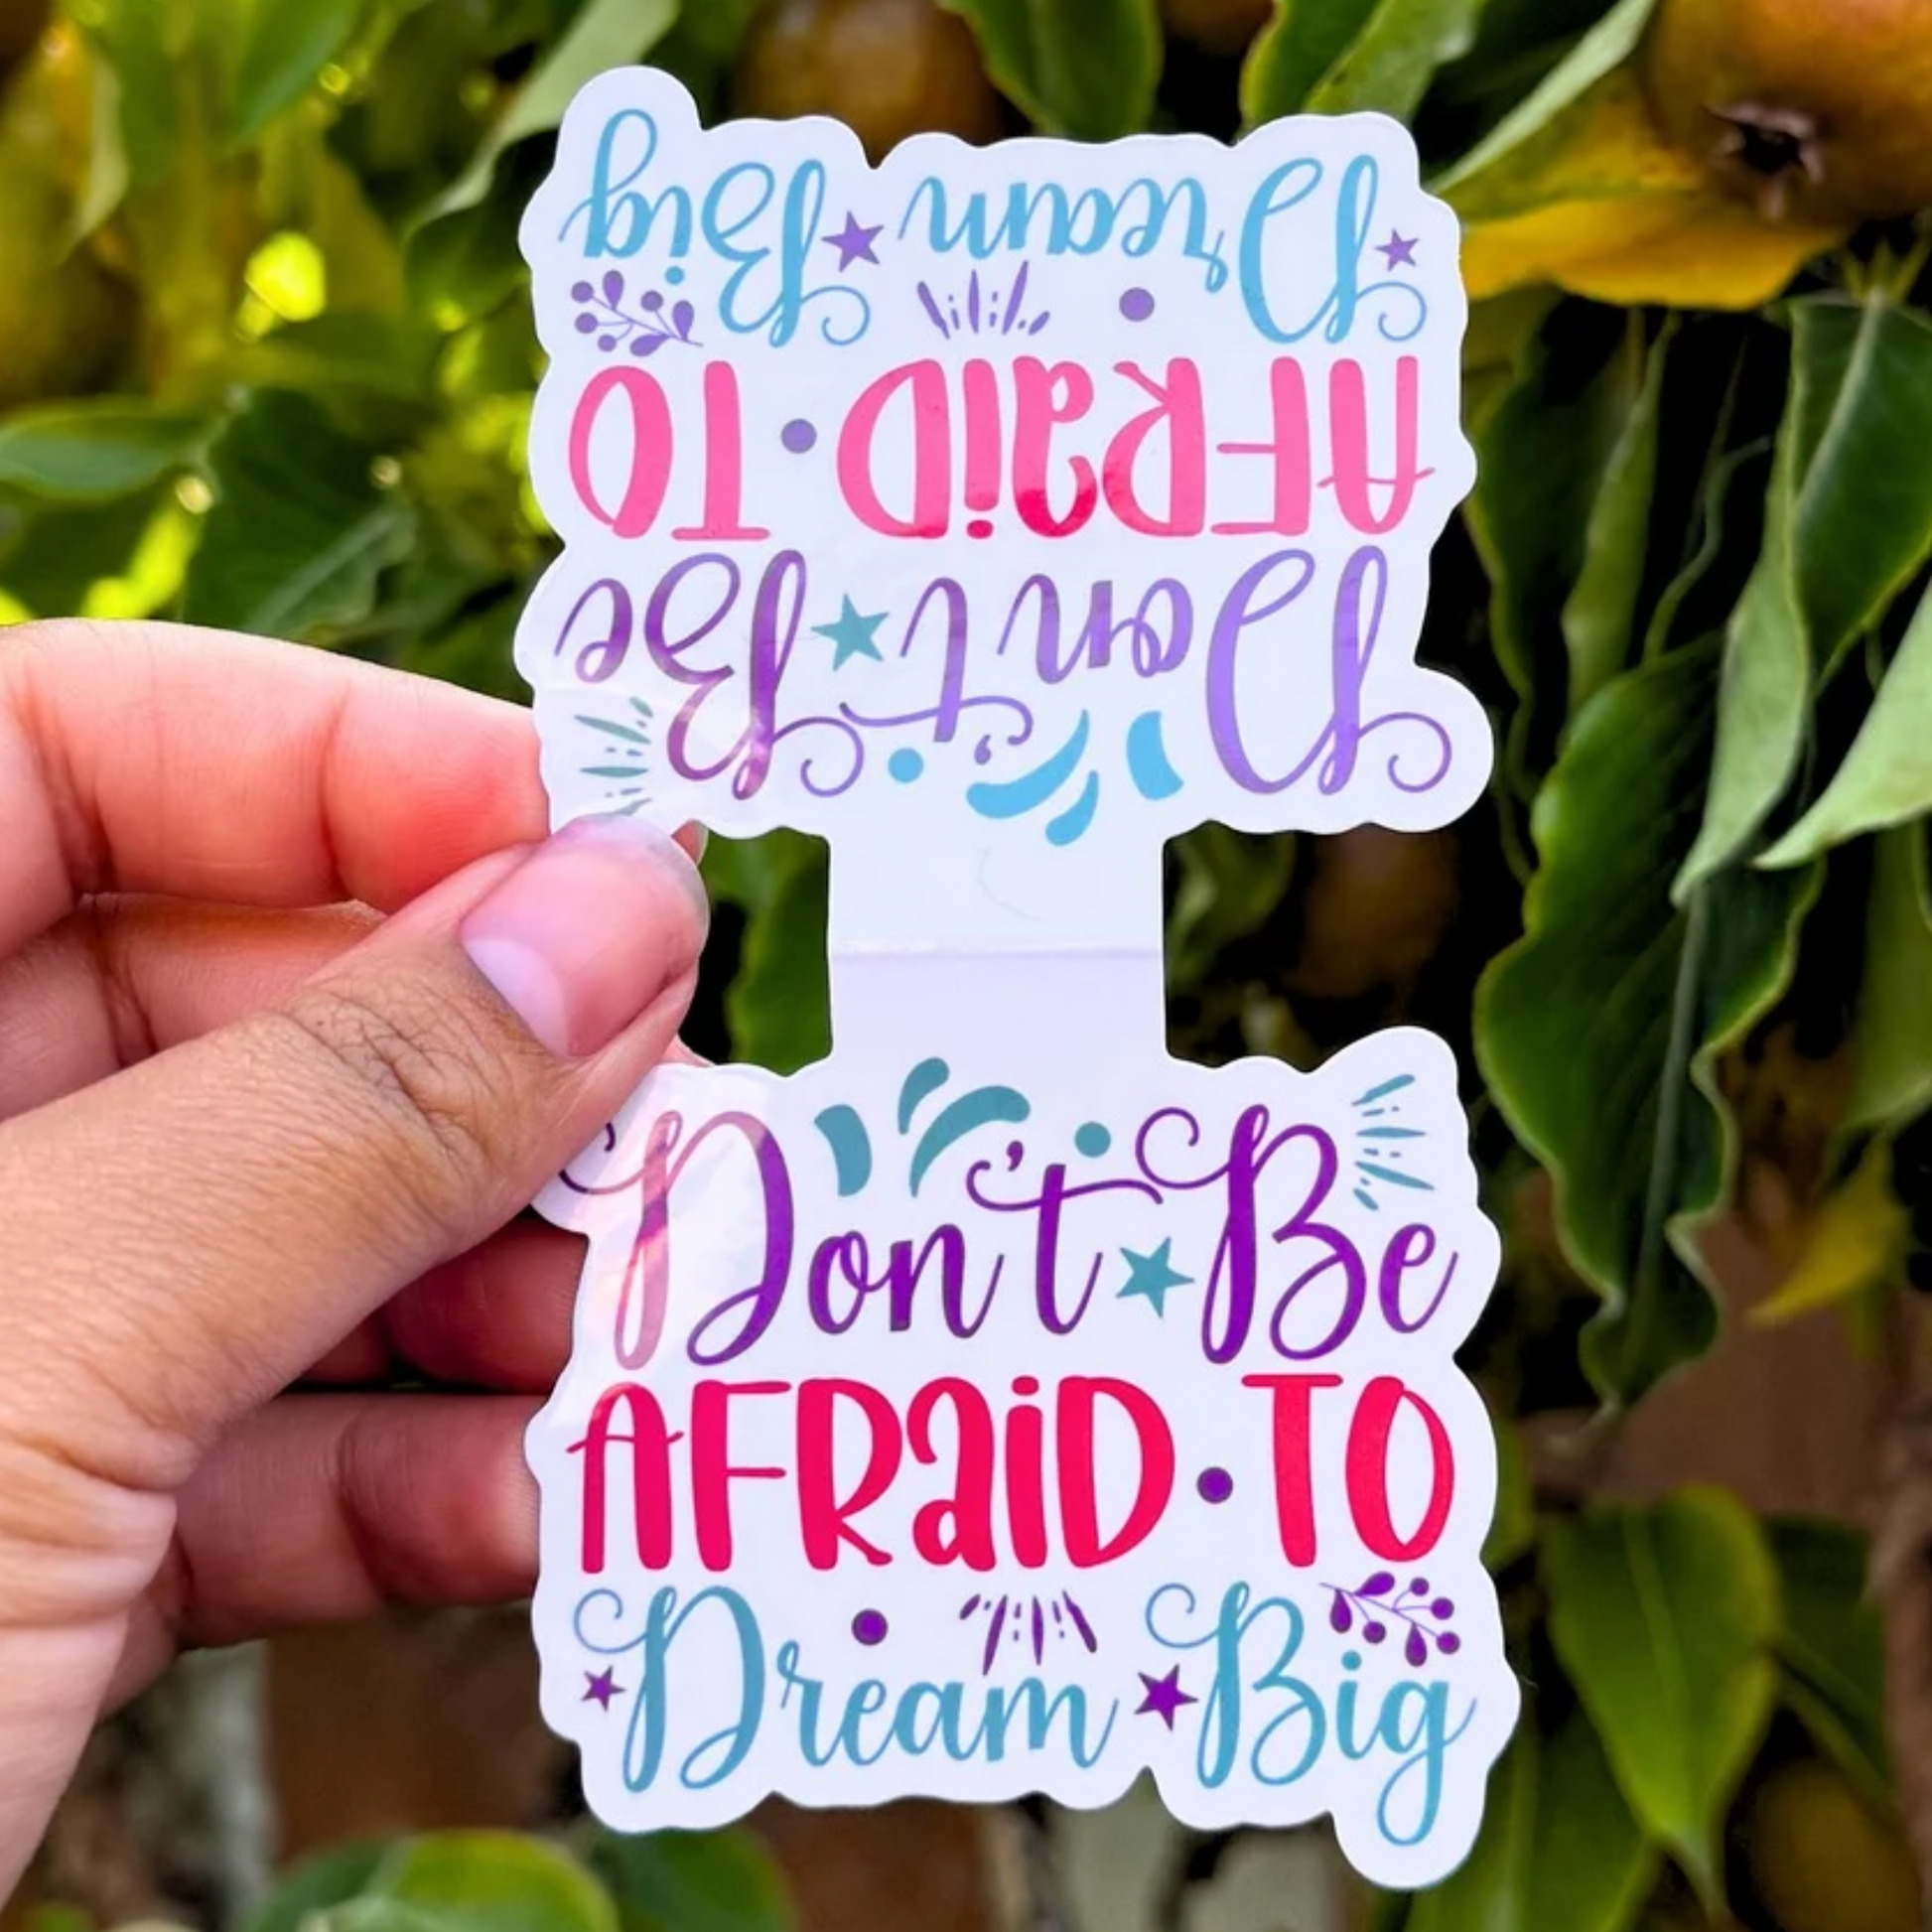 Don't Be
AFRaiD • TO
Dream Big
Don't Be
AFRaiD • TO
Dream Big